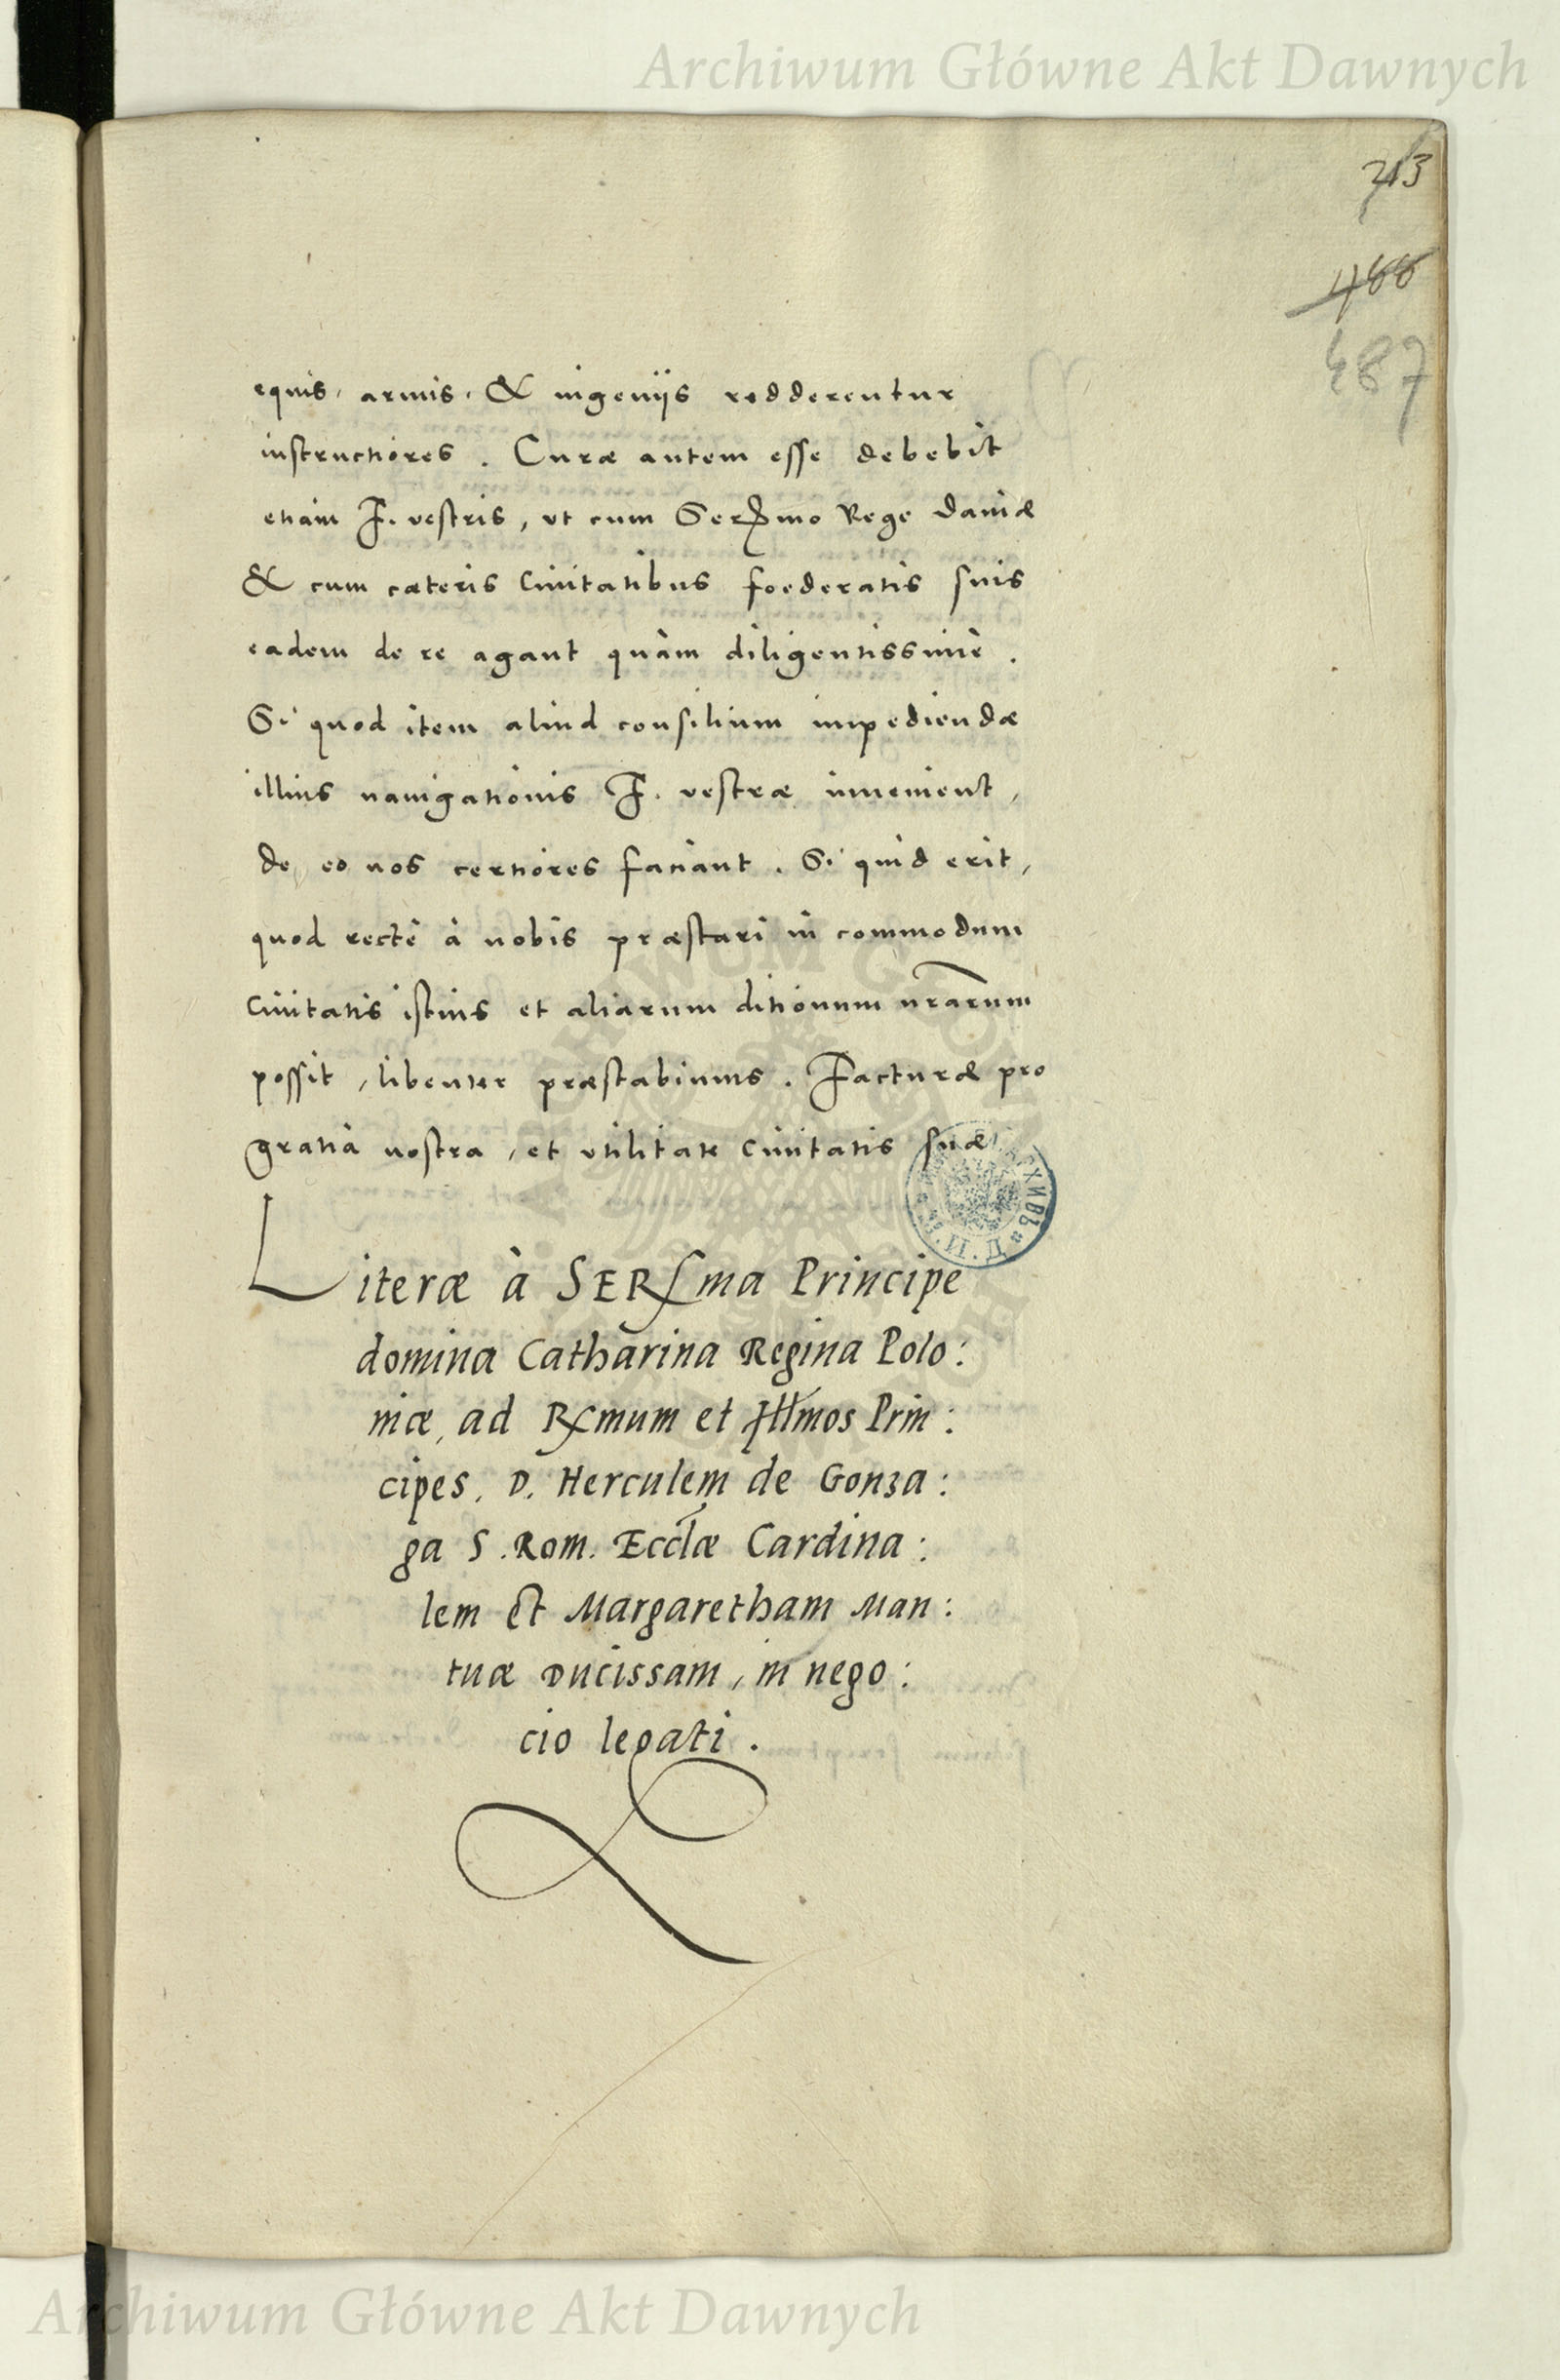 Archiwum Główne Akt Dawnych
213
466
487
equis, armis, & ingeniis redderentur
instructiores. Curæ autem esse debebit
etiam F. vestris, ut cum Sermo Rege Daniæ
& cum cæteris Civitatibus foederatis suis
eadem de re agant quàm diligentissimè.
Si quod item aliud consilium impediendæ
illius navigationis F. vestræ invenient,
de eo nos certiores faciant. Si quid erit,
quod rectè à nobis præstari in commodum
Civitatis istius et aliarum ditionum nrarum
possit, libenter præstabimus. Facturæ pro
gratia nostra, et utilitate Civitatis suæ
Literæ à SERma Principe
domina Catharina Regina Polo:
niæ, ad Rmum et Illmos Prin:
cipes, D. Herculem de Gonza:
ga S. Rom. Eccliæ Cardina:
lem et Margaretham Man:
tuæ Ducissam, in nego:
cio legati.
Archiwum Główne Akt Dawnych